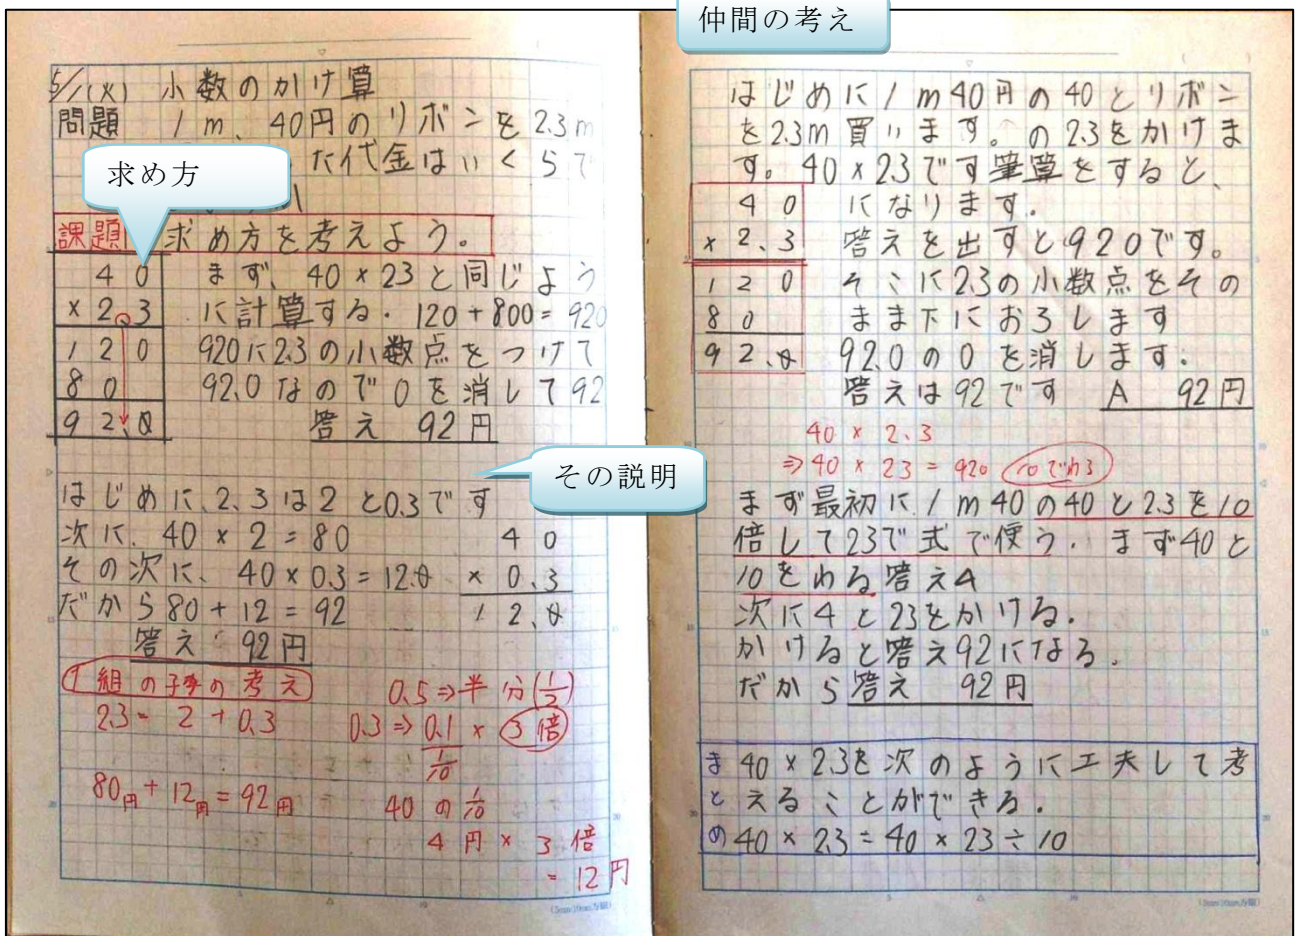 仲間の考え
5/1(火) 小数のかけ算
問題 1m、40円のリボンを2.3m
た代金はいくらで
求め方
課題 求め方を考えよう。
40
×2.3
120
80
92.0
まず、40×23と同じよう
に計算する。120+800=920
920に2.3の小数点をつけて
92.0なので0を消して92
答え 92円
その説明
はじめに、2.3は2と0.3です
次に、40×2=80
その次に、40×0.3=12.0
だから80+12=92
答え 92円
40
×0.3
12.0
1組の子の考え
2.3=2+0.3
80円+12円=92円
0.5⇒半分(1/2)
0.3⇒0.1×3倍
1/10
40の1/10
4円×3倍
=12円
はじめに1m40円の40とリボン
を2.3m買います。の2.3をかけま
す。40×2.3です筆算をすると、
40
×2.3
120
80
92.0
になります。
答えを出すと920です。
そこに2.3の小数点をその
まま下におろします
92.0の0を消します。
答えは92です A 92円
40×2.3
⇒40×23=920 10でわる
まず最初に1m40の40と2.3を10
倍して23で式で使う。まず40と
10をわる答え4
次に4と23をかける。
かけると答え92になる。
だから答え 92円
まとめ
40×2.3を次のように工夫して考
えることができる。
40×2.3=40×23÷10
(5mm/10mm方眼)
(5mm/10mm方眼)